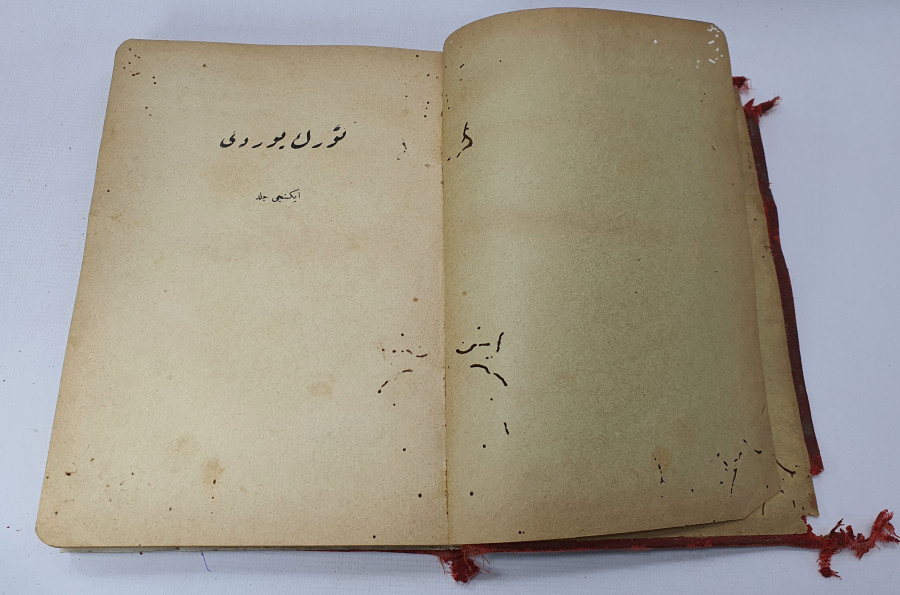 تورك يوردى
ايكنجى جلد